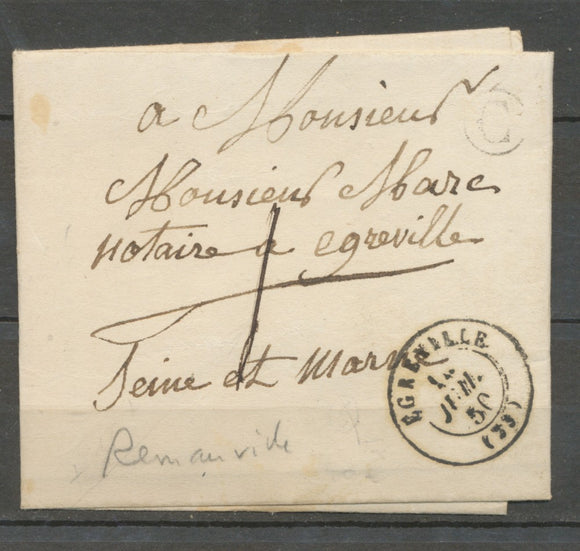 a Monsieur
C
Monsieur Marc
notaire a egreville
1
Seine et marne
EGREVILLE
JUIL.
50
Remauville